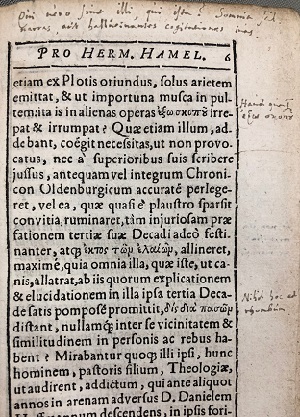 PRO HERM. HAMEL. 6
etiam ex Plotis oriundus, solus arietem
emittat, & ut importuna musca in pul-
temita is in alienas operas ἔξω σκοποῦ irre-
pat & irrumpat? Quæ etiam illum, ad-
debant, coëgit necessitas, ut non provo-
catus, nec à superioribus suis scribere
jussus, antequam vel integrum Chroni-
con Oldenburgicum accuratè perlege-
ret, vel ea, quæ quasi è plaustro sparsit
convitia, ruminaret, tàm injuriosam præ
fationem tertiæ suæ Decadi adeò festi-
nanter, atq; ἐκτὸς τῶν ἐλαιῶν, allineret,
maximè, quia omnia illa, quæ iste, ut ca-
nis, allatrat, ab iis quorum explicationem
& elucidationem in illa ipsa tertia Deca-
de satis pomposè promittit, δὶς διὰ πασῶν
distant, nullamq; inter se vicinitatem &
similitudinem in personis ac rebus ha-
bent? Mirabantur quoq; illi ipsi, hunc
hominem, pastoris filium, Theologiæ,
ut audirent, addictum, qui ante aliquot
annos in arenam adversus D. Danielem
descendens, in ipsis fori-